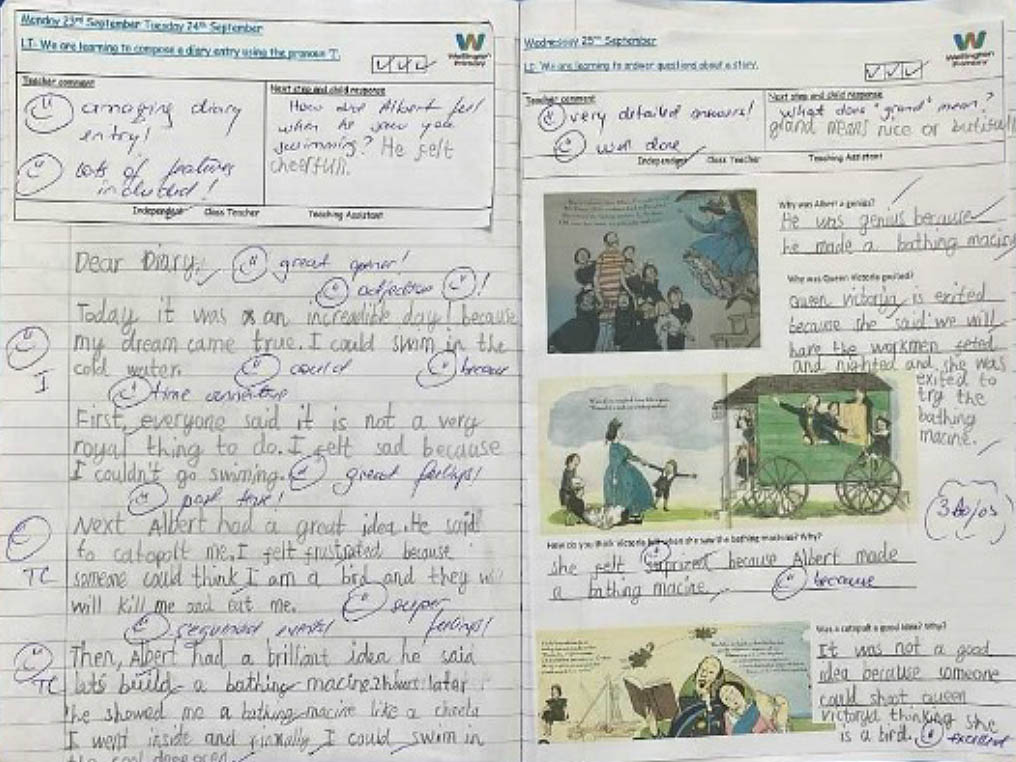 Monday 23rd September Tuesday 24th September
LI- We are learning to compose a diary entry using the pronoun 'I'.
Wellington
Primary
Teacher comment
amazing diary
entry!
lots of features
included!
Next step and child response
How did Albert feel
when he saw you
swimming? He felt
cheerfull.
Independent Class Teacher Teaching Assistant
Dear Diary,
great opener!
adjective !
Today it was an incredible day! because
my dream came true. I could swim in the
I
cold water.
could
because
time connective
First, everyone said it is not a very
royal thing to do. I felt sad because
I couldn't go swiming.
great feelings!
past tense!
Next Albert had a great idea. He said
to catapolt me. I felt frustrated because
TC
someone could think I am a bird and they
will kill me and eat me.
super
feelings!
sequenced events!
Then, Albert had a brilliant idea he said
TC
lats build a bathing macine. 2 hours later
he showed me a bathing macine like a
I went inside and finally I could swim in
Wednesday 25th September
LI- We are learning to answer questions about a story.
Wellington
Primary
Teacher comment
very detailed answers!
well done
Next step and child response
What does "grand" mean?
grand means nice or butifull
Independent Class Teacher Teaching Assistant
Why was Albert a genius?
He was genius because
he made a bathing macine
Why was Queen Victoria excited?
Queen victorya is exited
because she said we will
have the workmen
and nighted and she was
exited to
try the
bathing
macine.
3 Dojos
How do you think Victoria felt when she saw the bathing machine? Why?
She felt surprized because Albert made
a bathing macine.
because
Was a catapult a good idea? Why?
It was not a good
idea because someone
could shoot queen
victorya thinking she
is a bird.
excellent